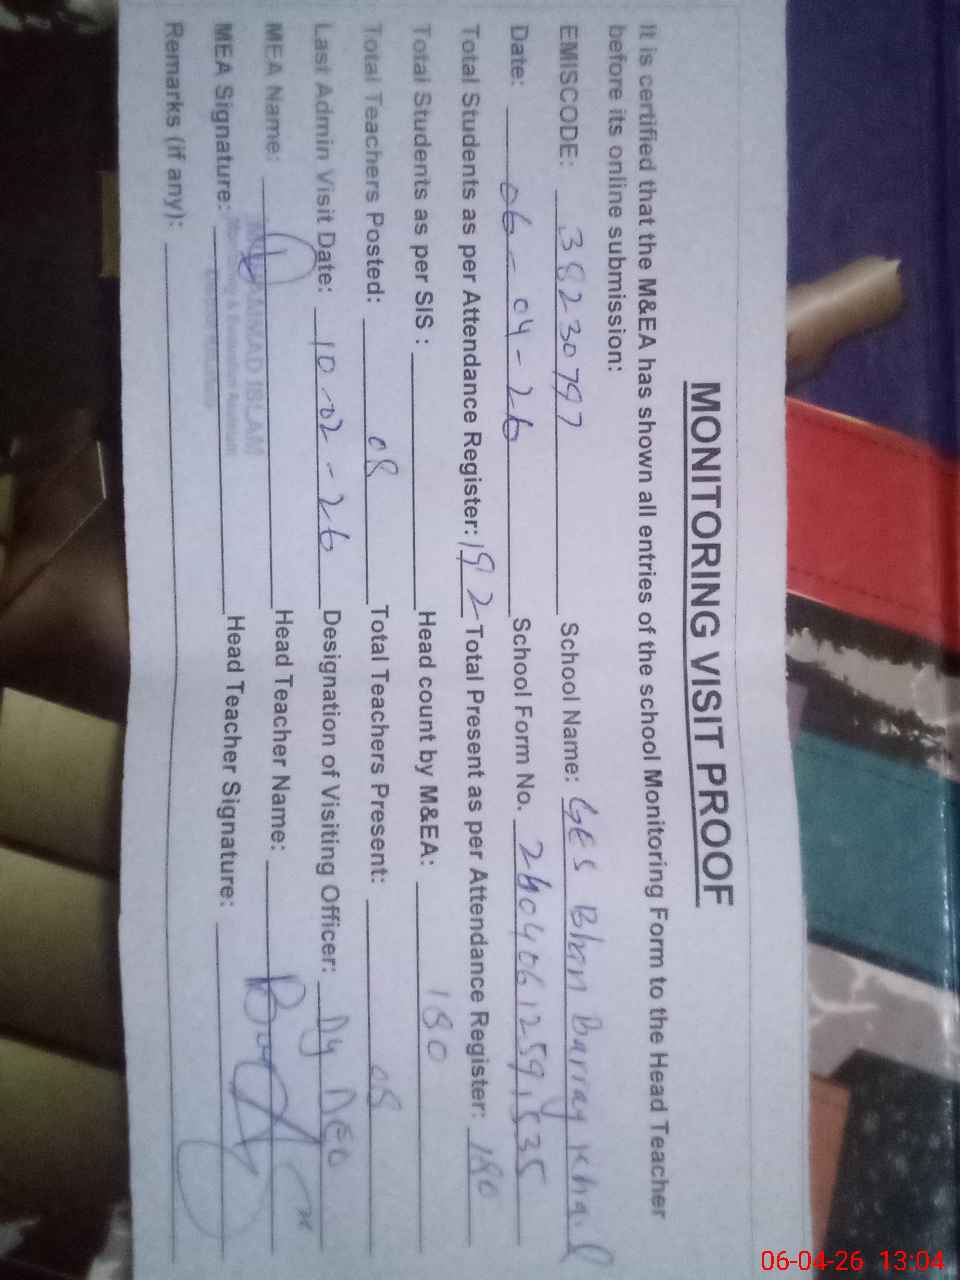 MONITORING VISIT PROOF
It is certified that the M&EA has shown all entries of the school Monitoring Form to the Head Teacher
before its online submission:
EMISCODE: 38230797 School Name: GES Bhan Barray Khail
Date: 06-04-26 School Form No. 260406125953 5
Total Students as per Attendance Register: 192 Total Present as per Attendance Register: 180
Total Students as per SIS : Head count by M&EA: 180
Total Teachers Posted: 08 Total Teachers Present: 08
Last Admin Visit Date: 10-02-26 Designation of Visiting Officer: Dy DEO
MEA Name: MUHAMMAD ISLAM Head Teacher Name:
MEA Signature: Monitoring & Evaluation Assistant Head Teacher Signature:
Remarks (if any):
06-04-26 13:04